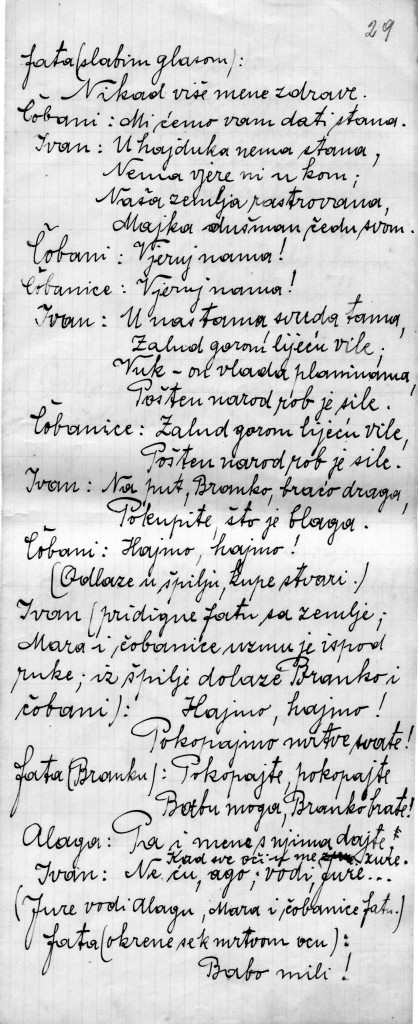 29
Fata (slabim glasom):
Nikad više mene zdrave.
Čobani: Mi ćemo vam dati stana.
Ivan: U hajduka nema stana,
Nema vjere ni u kom;
Naša zemlja rastrovana,
Majka dušman čedu svom.
Čobani: Vjeruj nama!
Čobanice: Vjeruj nama!
Ivan: U nas tama, svuda tama,
Zalud gorom lijeću vile,
Vuk - on vlada planinama,
Pošten narod rob je sile.
Čobanice: Zalud gorom lijeću vile,
Pošten narod rob je sile.
Ivan: Na put, Branko, braćo draga,
Pokupite, što je blaga.
Čobani: Hajmo, hajmo!
(Odlaze u špilju, kupe stvari.)
Ivan (pridigne Fatu sa zemlje;
Mara i čobanice uzmu je ispod
ruke; iz špilje dolaze Branko i
čobani): Hajmo, hajmo!
Pokopajmo mrtve svate!
Fata (Branku): Pokopajte, pokopajte
Babu moga, Branko brate!
Alaga: Pa i mene s njima dajte,
Kad sve oči u me zure.
Ivan: Ne ću, ago; vodi, Jure...
(Jure vodi Alagu, Mara i čobanice Fatu.)
Fata (okrene se k mrtvom ocu):
Babo mili!